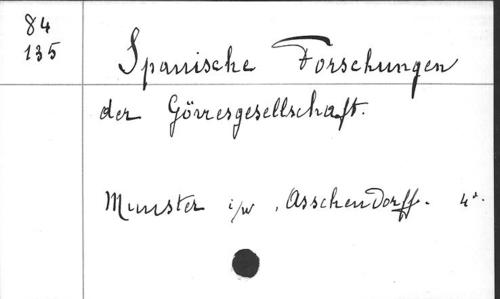 84
135
Spanische Forschungen
der Görresgesellschaft.
Munster i/w, Asschendorff. 4º.